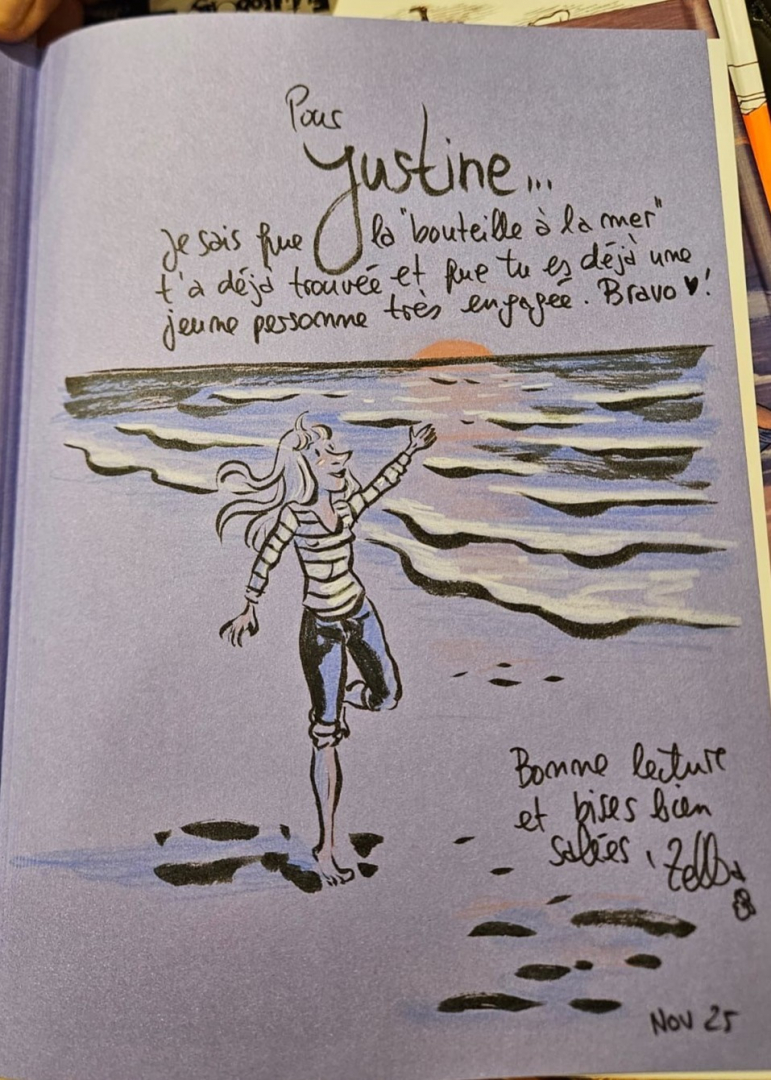 Pour
Justine...
Je sais que la "bouteille à la mer"
t'a déjà trouvée et que tu es déjà une
jeune personne très engagée. Bravo ♥!
Bonne lecture
et bises bien
salées,
Zelba
Nov 25